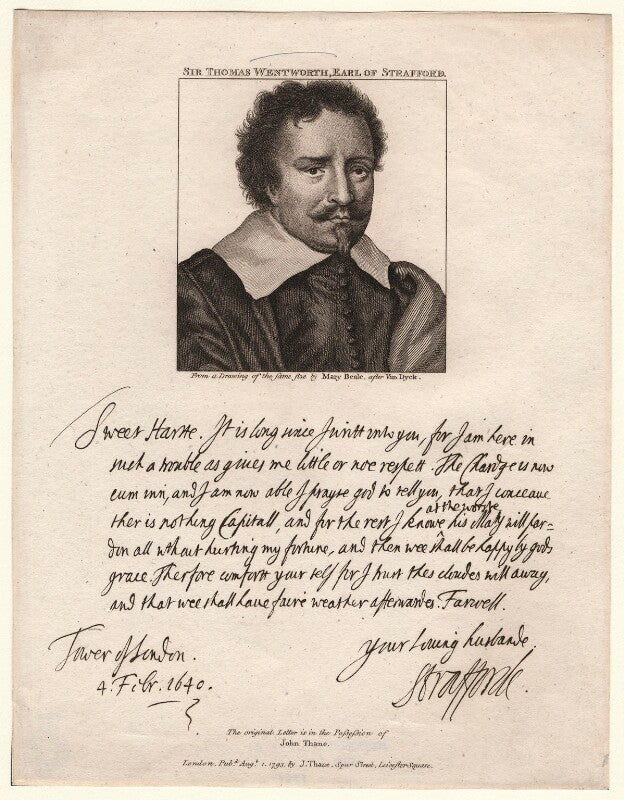 SIR THOMAS WENTWORTH, EARL OF STRAFFORD.
From a Drawing of the same size by Mary Beale, after Van Dyck.
Sweet Harte. It is long since I writt into you, for I am here in
such a trouble as gives me little or noe respett. The Chardge is now
cum inn, and I am now able I prayse god to tell you, that I conceave
ther is nothing Capitall, and for the rest I knowe
at the worste
his Maty will par=
don all without hurting my fortune, and then wee shall be happy by gods
grace. Therfore comfort your self for I trust thes cloudes will away,
and that wee shall have faire weather afterwardes. Farwell.
Your loving husbande
Tower of London.
4. Febr. 1640.
Strafforde.
The original Letter is in the Possession of
John Thane.
London, Pubd. Augt. 1. 1793, by J. Thane, Spur Street, Leicester Square.